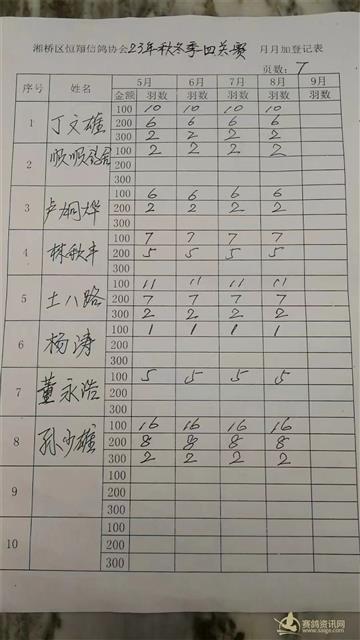 湘桥区恒翔信鸽协会23年秋冬季四关赛 月月加登记表
页数:7
序号 姓名 5月 6月 7月 8月 9月
金额 羽数 羽数 羽数 羽数 羽数
1 丁文雄 100 10 10 10 10
200 6 6 6 6
300 2 2 2 2
2 顺顺鸽舍 100 2 2 2 2
200
300
3 卢炯烨 100 6 6 6 6
200 2 2 2 2
300
4 林秋丰 100 7 7 7 7
200 5 5 5 5
300
5 土八路 100 11 11 11 11
200 7 7 7 7
300 2 2 2 2
6 杨涛 100 1 1 1 1
200
300
7 董永浩 100 5 5 5 5
200
300
8 孙少雄 100 16 16 16 16
200 8 8 8 8
300 2 2 2 2
9 100
200
300
10 100
200
300
赛鸽资讯网
www.saige.com